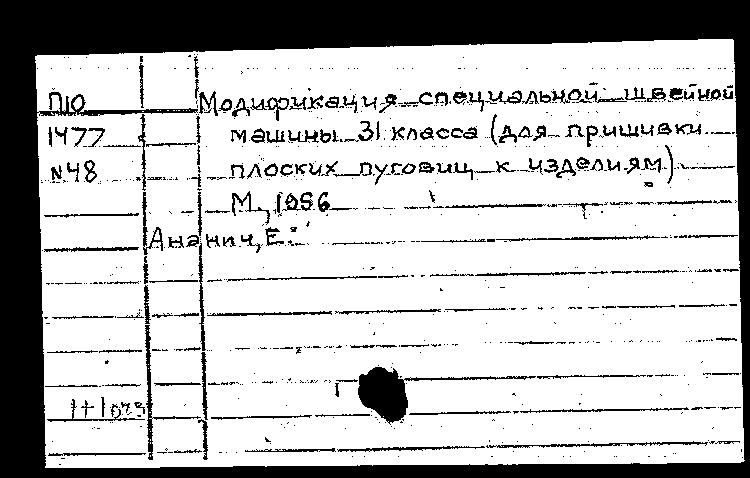 П10 Модификация специальной швейной
1477 машины 31 класса (для пришивки
N48 плоских пуговиц к изделиям)
М., 1956
Ананич, Е.
1+1